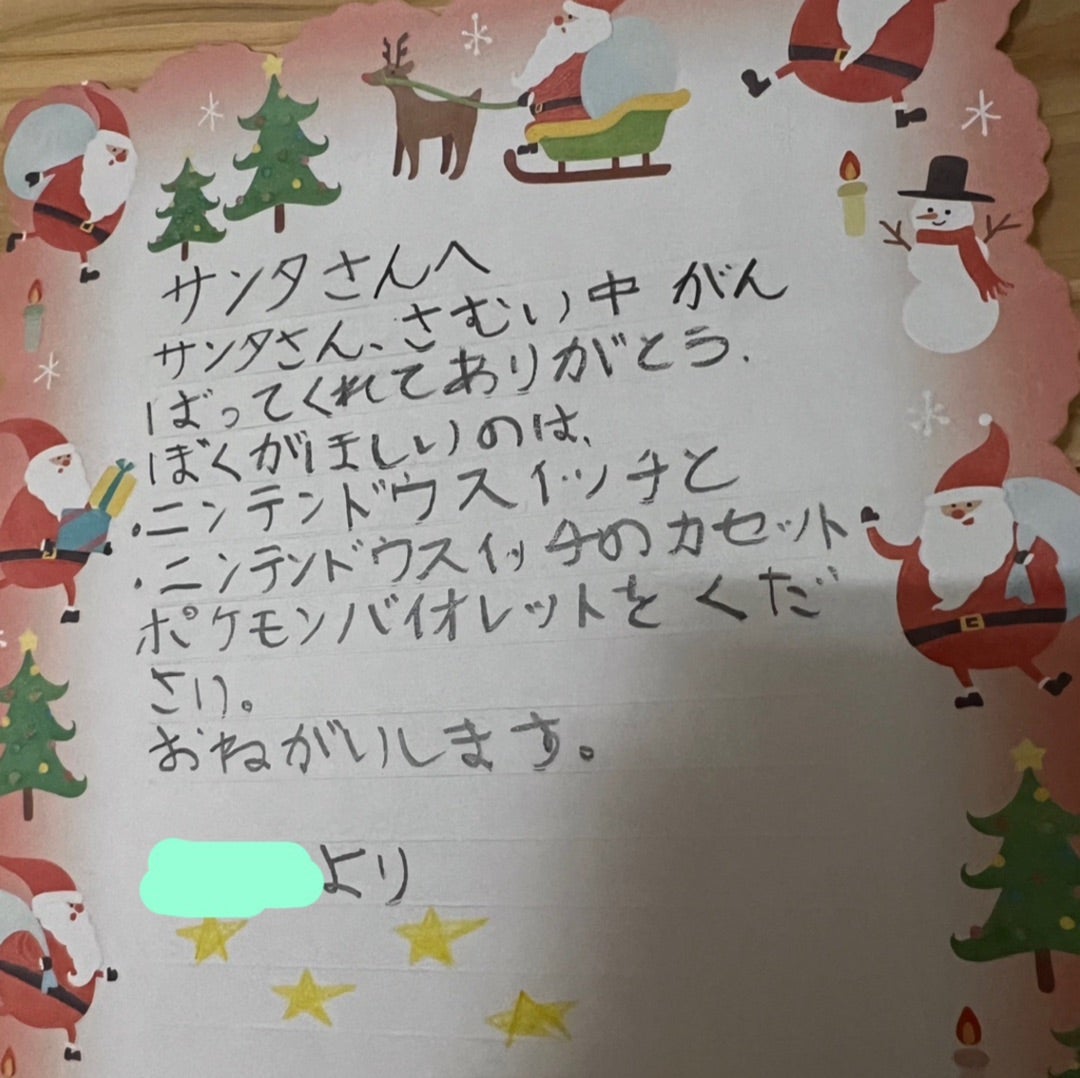 サンタさんへ
サンタさん、さむい中がん
ばってくれてありがとう.
ぼくがほしいのは、
・ニンテンドウスイッチと
・ニンテンドウスイッチのカセット
ポケモンバイオレットをくだ
さい。
おねがいします。
より